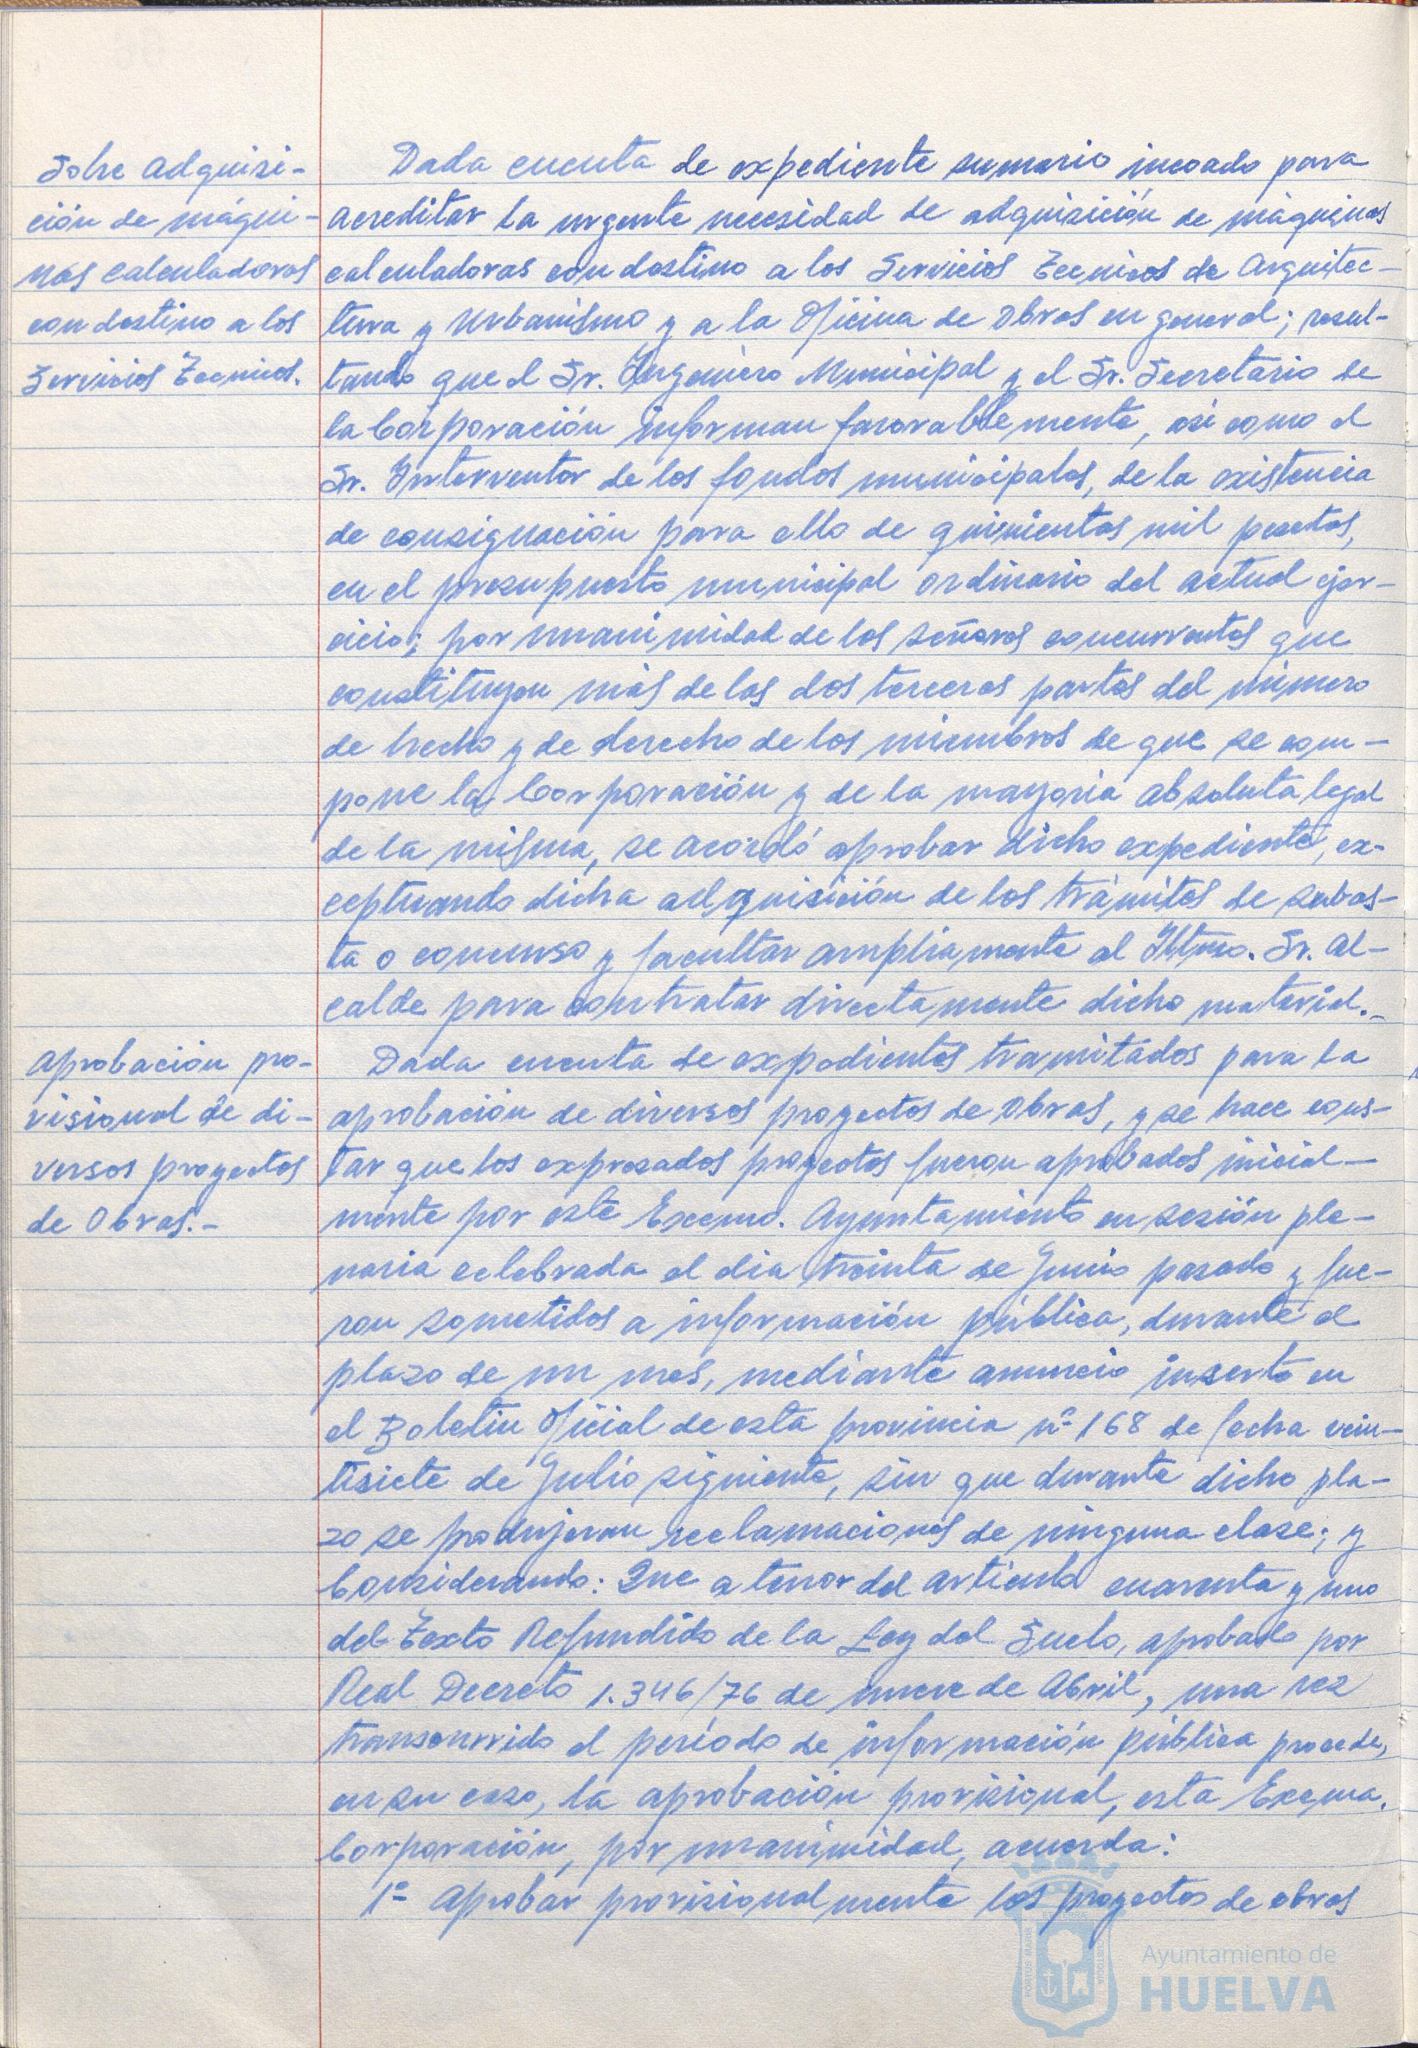 Sobre adquisi-
ción de máqui-
nas calculadoras
con destino a los
Servicios Tecnicos.
Dada cuenta de expediente sumario incoado para
acreditar la urgente necesidad de adquisición de máquinas
calculadoras con destino a los Servicios Tecnicos de Arquitec-
tura y Urbanismo y a la Oficina de Obras en general; resul-
tando que el Sr. Ingeniero Municipal y el Sr. Secretario de
la Corporación informan favorablemente, así como el
Sr. Interventor de los fondos municipales, de la existencia
de consignación para ello de quinientas mil pesetas,
en el presupuesto municipal ordinario del actual ejer-
cicio; por unanimidad de los señores concurrentes que
constituyen más de las dos terceras partes del número
de hecho y de derecho de los miembros de que se com-
pone la Corporación y de la mayoria absoluta legal
de la misma, se acordó aprobar dicho expediente, ex-
ceptuando dicha adquisición de los trámites de subas-
ta o concurso y facultar ampliamente al Iltmo. Sr. Al-
calde para contratar directamente dicho material.-
Aprobación pro-
visional de di-
versos proyectos
de Obras.-
Dada cuenta de expedientes tramitados para la
aprobación de diversos proyectos de Obras, y se hace cons-
tar que los expresados proyectos fueron aprobados inicial-
mente por este Excmo. Ayuntamiento en sesión ple-
naria celebrada el dia treinta de Junio pasado y fue-
ron sometidos a información pública, durante el
plazo de un mes, mediante anuncio inserto en
el Boletin Oficial de esta provincia nº 168 de fecha vein-
tisiete de Julio siguiente, sin que durante dicho pla-
zo se produjeran reclamaciones de ninguna clase; y
Considerando: Que a tenor del artículo cuarenta y uno
del Texto Refundido de la Ley del Suelo, aprobado por
Real Decreto 1.346/76 de nueve de Abril, una vez
transcurrido el período de información pública procede,
en su caso, la aprobación provisional, esta Excma.
Corporación, por unanimidad, acuerda:
1º Aprobar provisionalmente los proyectos de obras
Ayuntamiento de
HUELVA